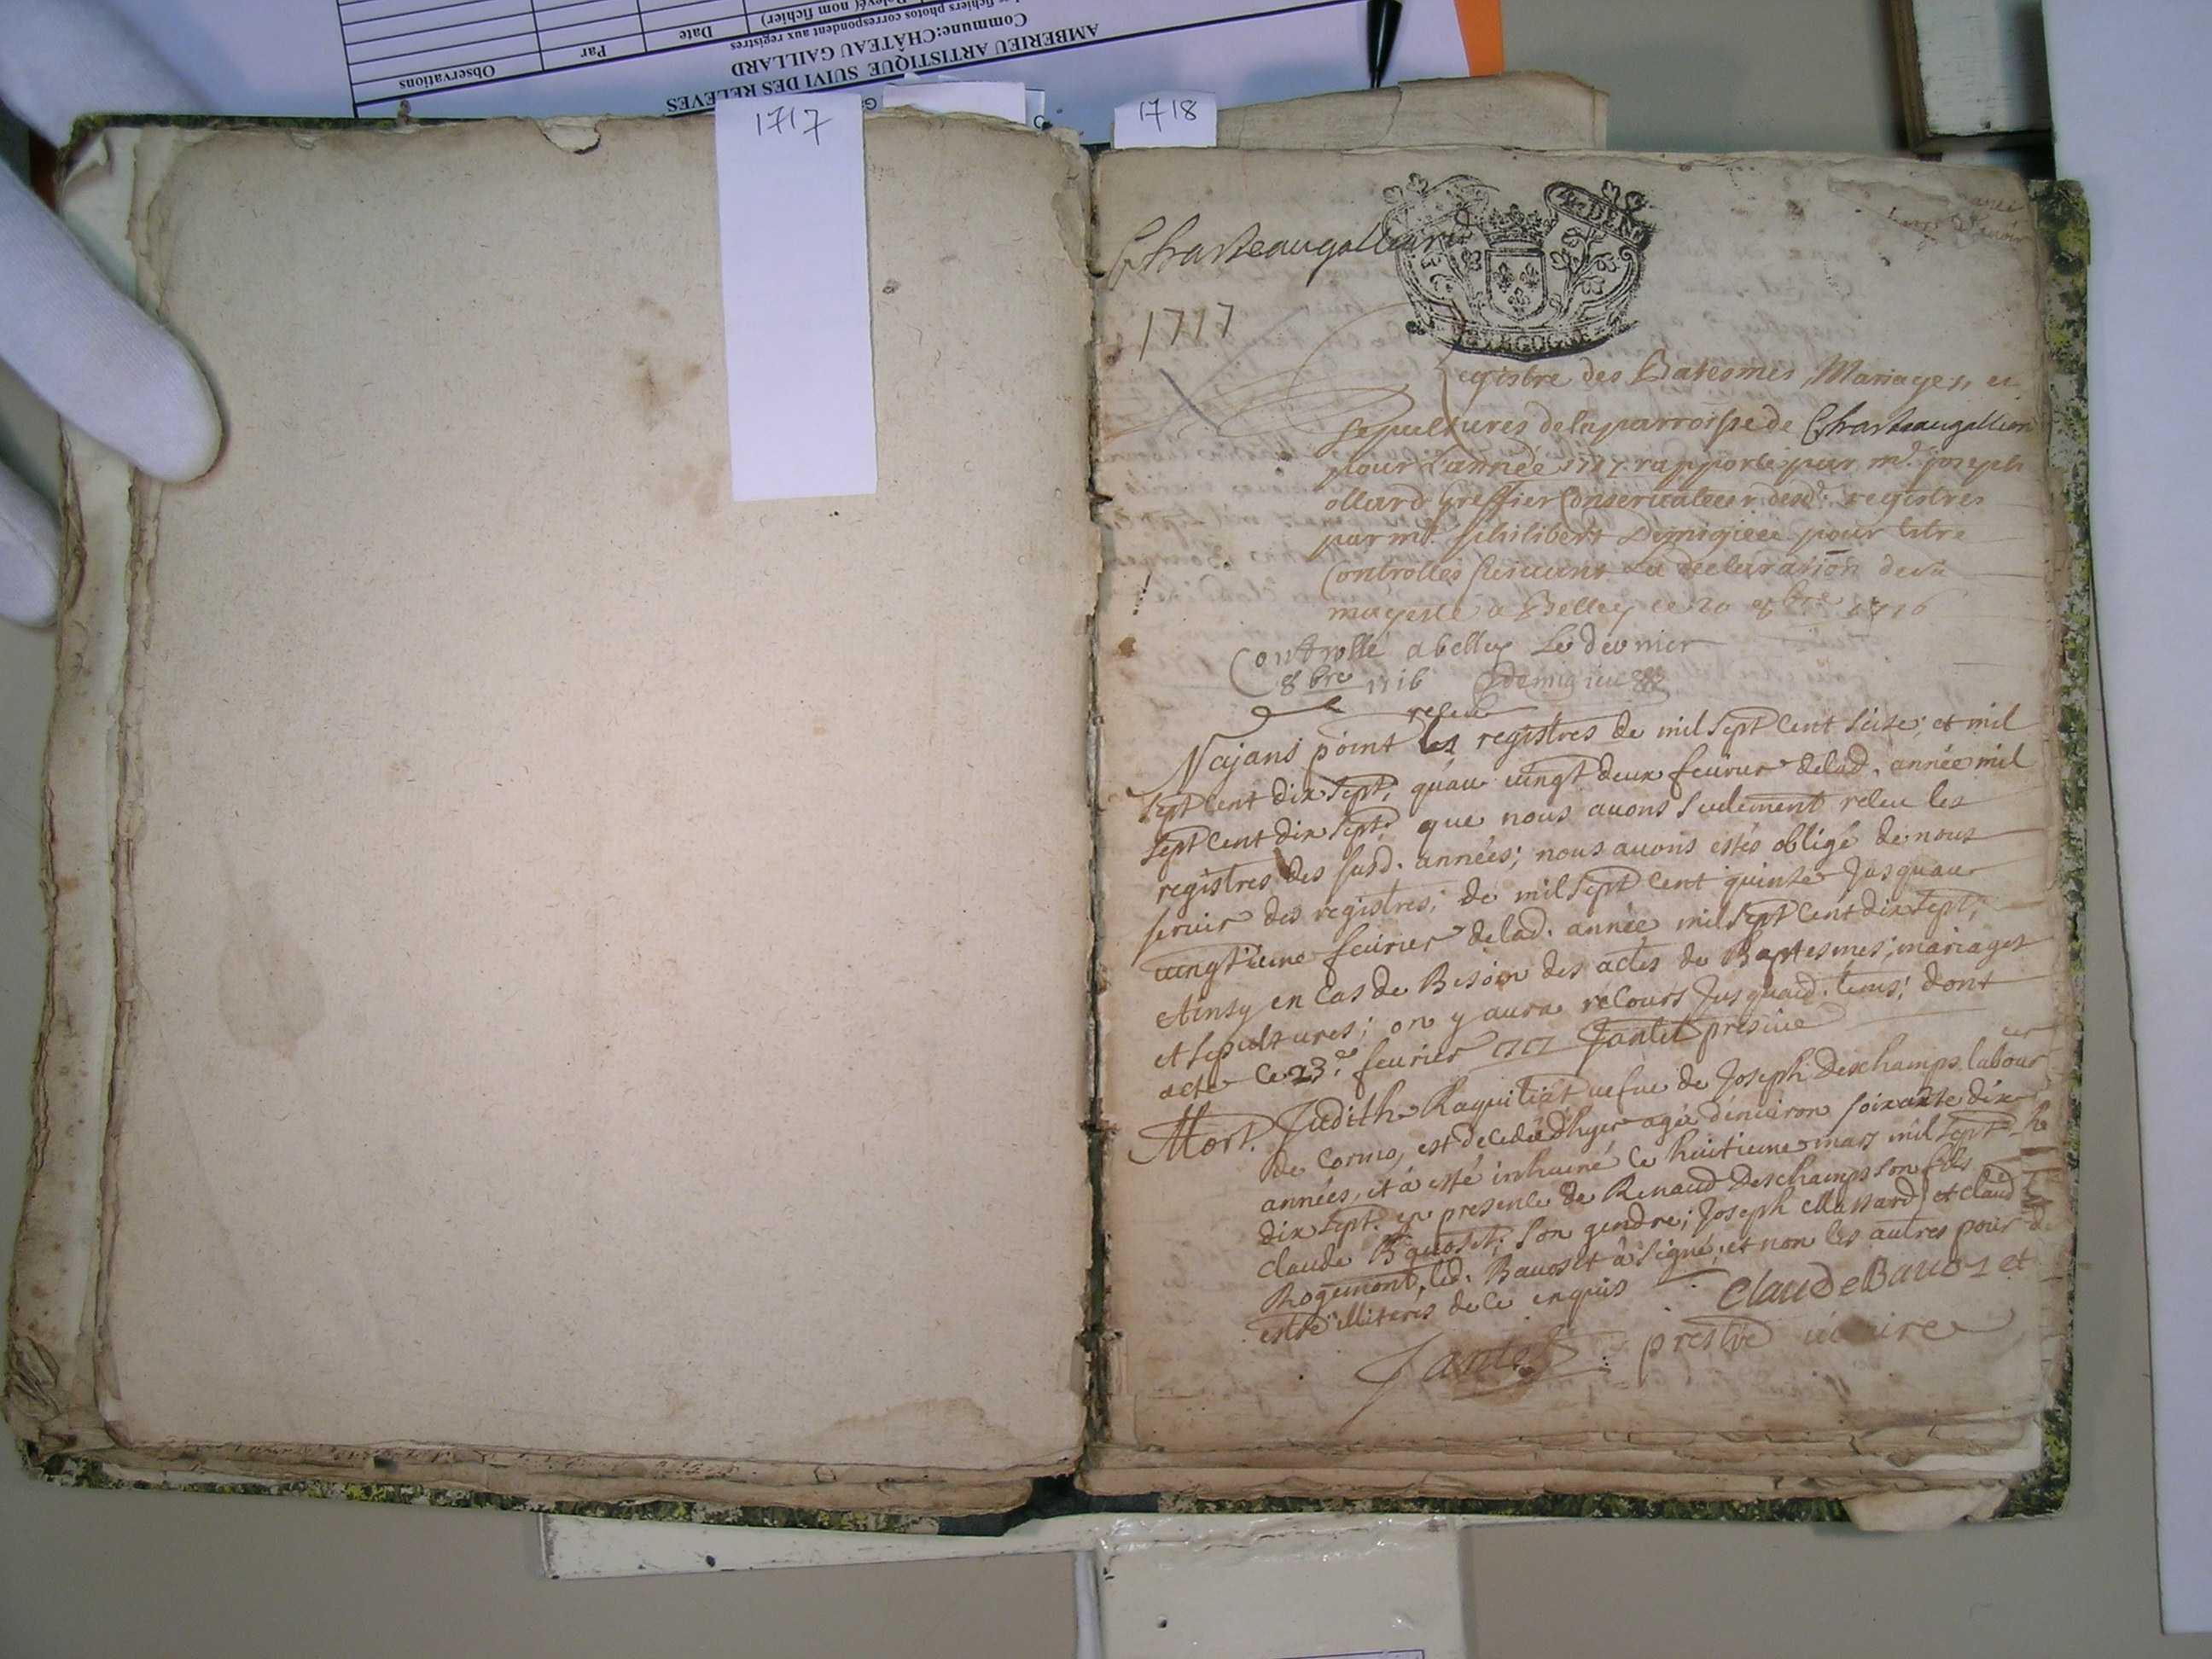 Observations
Par
Date
Commune:CHÂTEAU GAILLARD
AMBERIEU ARTISTIQUE SUIVI DES RELEVES
1717
1718
Chasteaugalliard
4. DEN
1717
Registre des Batesmes, Mariages, et
sepultures de la parroisse de Chasteaugalliard
pour l'année 1717. rapporté par mr. joseph
ollard greffier Conservateur desd. registres
par mr. philibert Demigieu pour estre
Controlles suivant La declaration de sa
majesté a Belley ce 20 8bre 1716
Controllé a belley Le dernier
8bre 1716 Demigieu
receu
N'ajans point les registres de mil sept cent seize; et mil
sept cent dix sept; qu'au vingt deux feuvrier delad. année mil
sept cent dix sept; que nous auons seulement releu les
registres des susd. années; nous auons estés obligé de nous
seruir des registres; de mil sept cent quinze jusquau
vingtieme feurier delad. année mil sept cent dix sept;
Ainsy en cas de Besoin des actes de Baptesmes; mariages
et sepultures; on y aura recours jusquaud. tems; dont
acte ce 23e feurier 1717 Jantet
Mort. Judith Raquitiat uefue de Joseph Deschamps labour
eur
de Cormo, est decedée d'hyer agée d'enuiron soixante dix
années, et a esté inhumé ce huitieme mars mil sept
dix sept. en presence de Renaud Deschamps son fils
claude Bauoset; son gendre; Joseph Massard et claud
Rogemont, led. Bauoset à signé; et non les autres pour
estre illiterés de ce enquis
Claude Bauoset
Jantet prestre uicaire